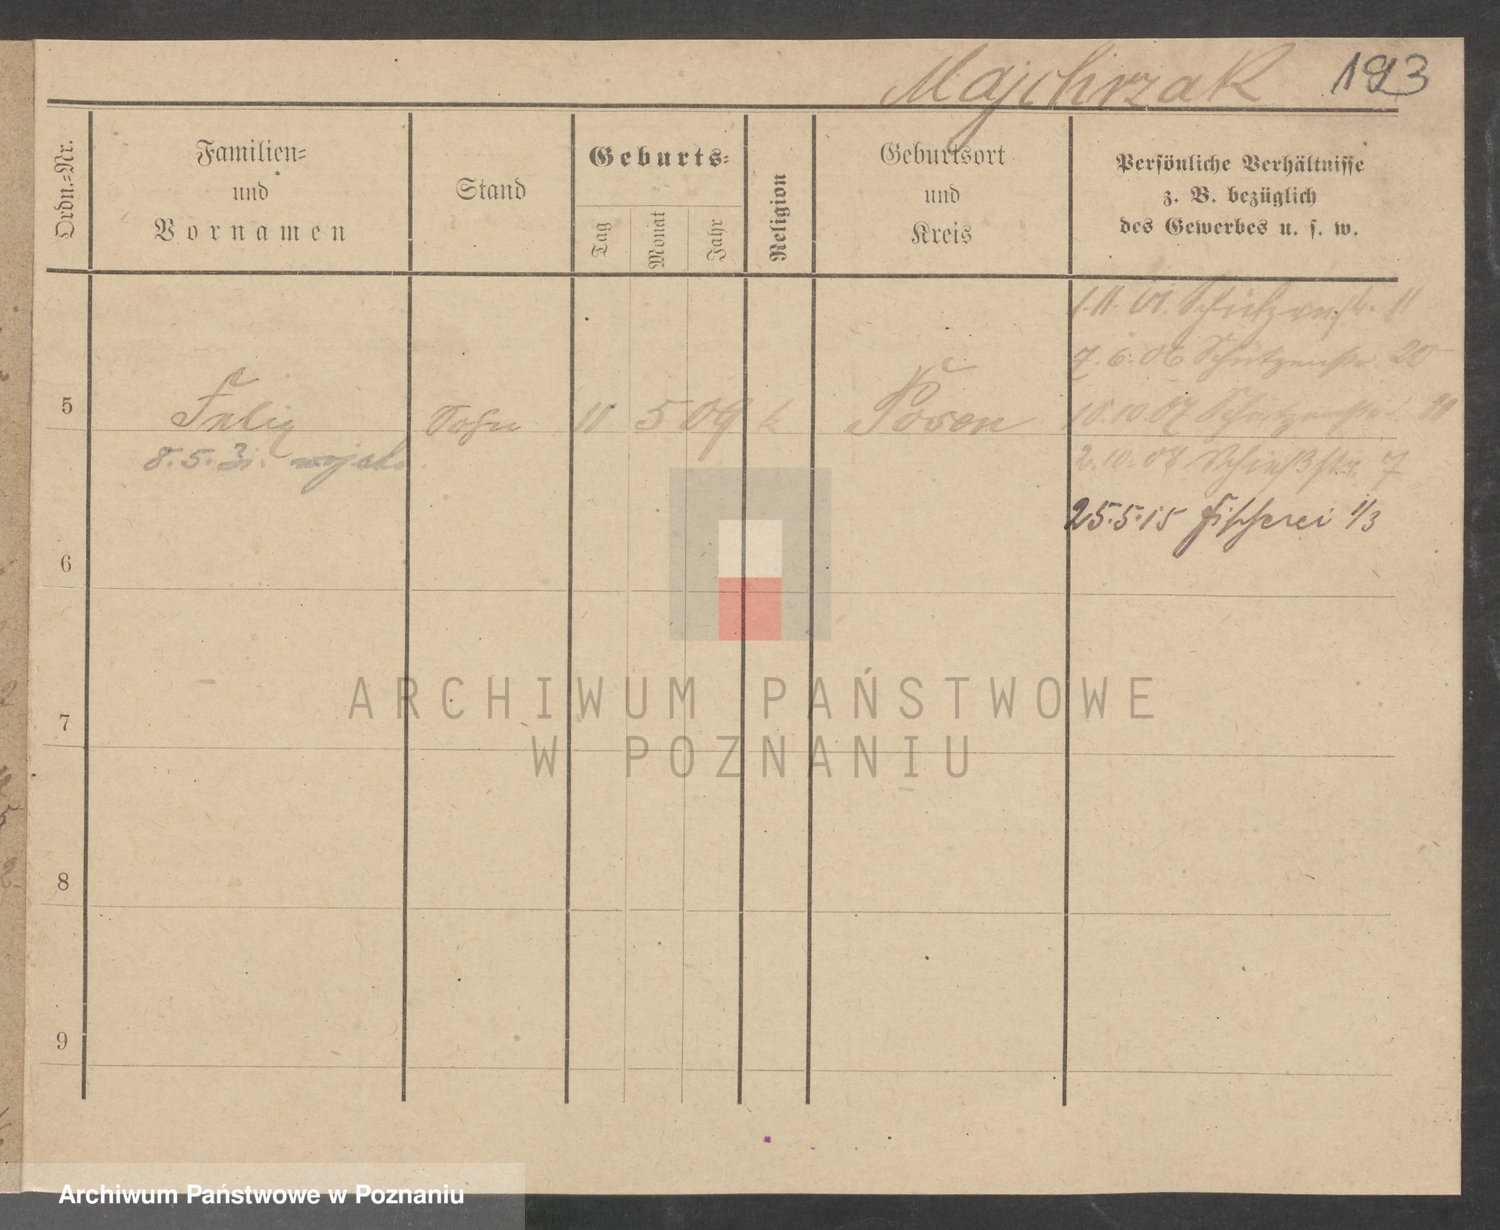 Majchrzak 193
Ordn.-Nr.
Familien-
und
Vornamen
Stand
Geburts-
Tag
Monat
Jahr
Religion
Geburtsort
und
Kreis
Persönliche Verhältnisse
z. B. bezüglich
des Gewerbes u. s. w.
1.11.01. Schützenstr. 11
7.6.06 Schützenstr. 20
5 Felix Sohn 11 5 09 k Posen
10.10.07 Schützenstr.
8.5.31.
2.10.08 Schießstr. 7
25.5.15 Fischerei 1/3
6
7
8
9
ARCHIWUM PAŃSTWOWE
W POZNANIU
Archiwum Państwowe w Poznaniu